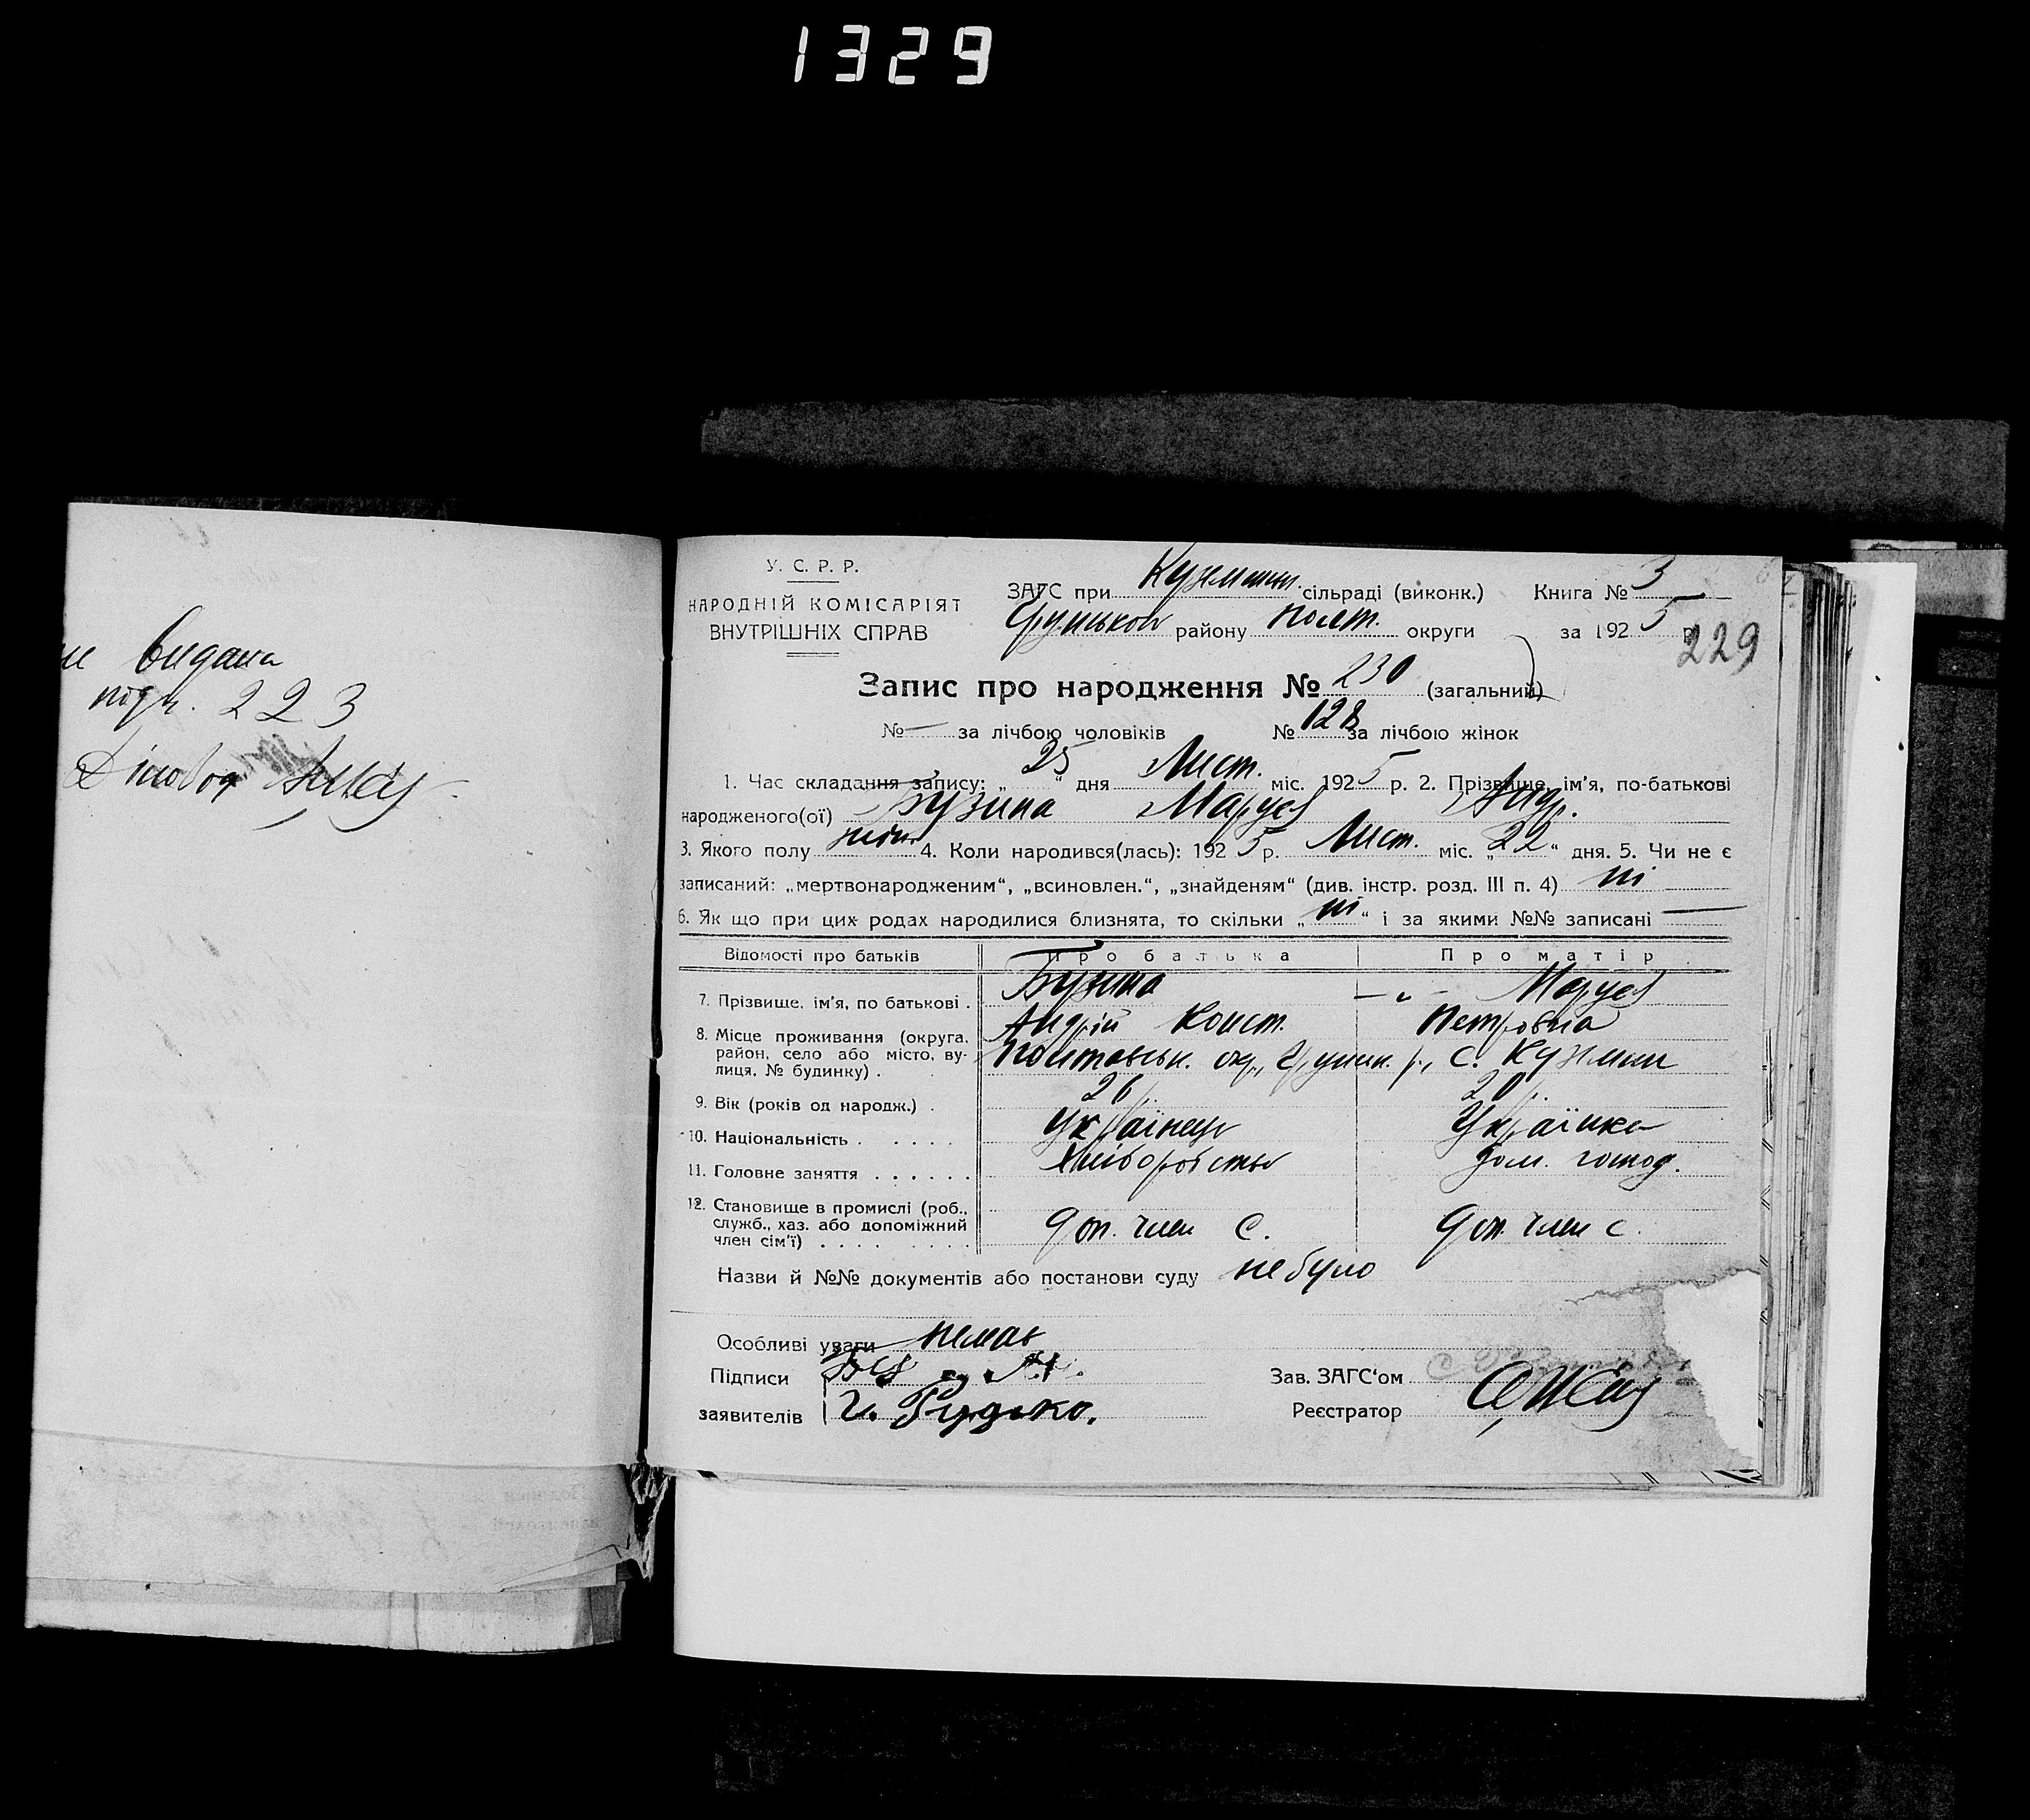 1329
видана
підч. 223
Діловод
У. С. Р. Р.
НАРОДНІЙ КОМІСАРІЯТ
ВНУТРІШНІХ СПРАВ
ЗАГС при Кузьмин. сільраді (виконк.) Книга № 3
району Полт. округи за 1925 р.
229
Запис про народження № 230 (загальний)
№ — за лічбою чоловіків № 128 за лічбою жінок
1. Час складання запису: „25“ дня Лист. міс. 1925 р. 2. Прізвище, ім'я, по-батькові
народженого(ої) Бузина Маруся Андр.
3. Якого полу жін. 4. Коли народився(лась): 1925 р. Лист. міс. „22“ дня. 5. Чи не є
записаний: „мертвонародженим“, „всиновлен.“, „знайденям“ (див. інстр. розд. III п. 4) ні
6. Як що при цих родах народилися близнята, то скільки „ні“ і за якими №№ записані —
Відомості про батьків Про батька Про матір
7. Прізвище, ім'я, по батькові . Бузина — „ — Маруся
Андрій Конст. Петровна
8. Місце проживання (округа, район, село або місто, вулиця, № будинку) . Полтавськ. окр., Грунськ. р., с. Кузьмин
9. Вік (років од народж.) . 26 р. 20 р.
10. Національність . . . . . Українец Українка
11. Головне заняття . . . . . . Хліборобство дом. господ.
12. Становище в промислі (роб., служб., хаз. або допоміжний член сім'ї) . . . . Доп. член С. Доп. член С.
Назви й №№ документів або постанови суду не було
Особливі уваги немає
Підписи
заявителів Г. Рудько.
Зав. ЗАГС'ом
Реєстратор